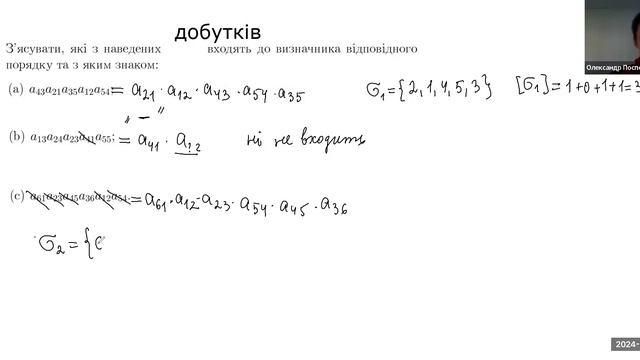 добутків
З'ясувати, які з наведених входять до визначника відповідного
порядку та з яким знаком:
Олександр Поспє
(a) a₄₃a₂₁a₃₅a₁₂a₅₄ = a₂₁ · a₁₂ · a₄₃ · a₅₄ · a₃₅ σ₁ = {2, 1, 4, 5, 3} [σ₁] = 1+0+1+1=3
" — "
(b) a₁₃a₂₄a₂₃a₄₁a₅₅; = a₄₁ · a₂₂ ні не входить
(c) a₆₁a₂₃a₄₅a₃₆a₁₂a₅₄. = a₆₁ · a₁₂ · a₂₃ · a₅₄ · a₄₅ · a₃₆
σ₂ = {
2024-